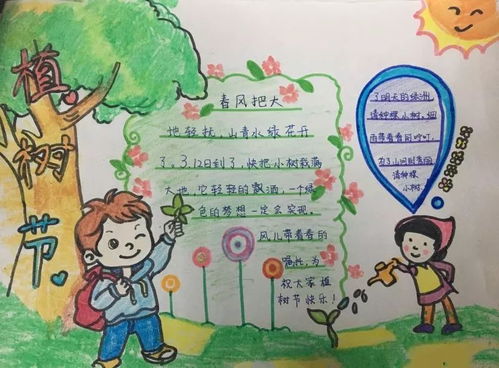 植树节
春风把大
地轻抚，山青水绿花开
了。3.12日到了，快把小树栽满
大地，它轻轻的飘洒，一个绿
色的梦想一定会实现。
风儿带着春的
嘱托，为
祝大家植
树节快乐！
了明天的绿洲，
请种棵小树。细
雨带着春风吟叮，
请种棵
小树。